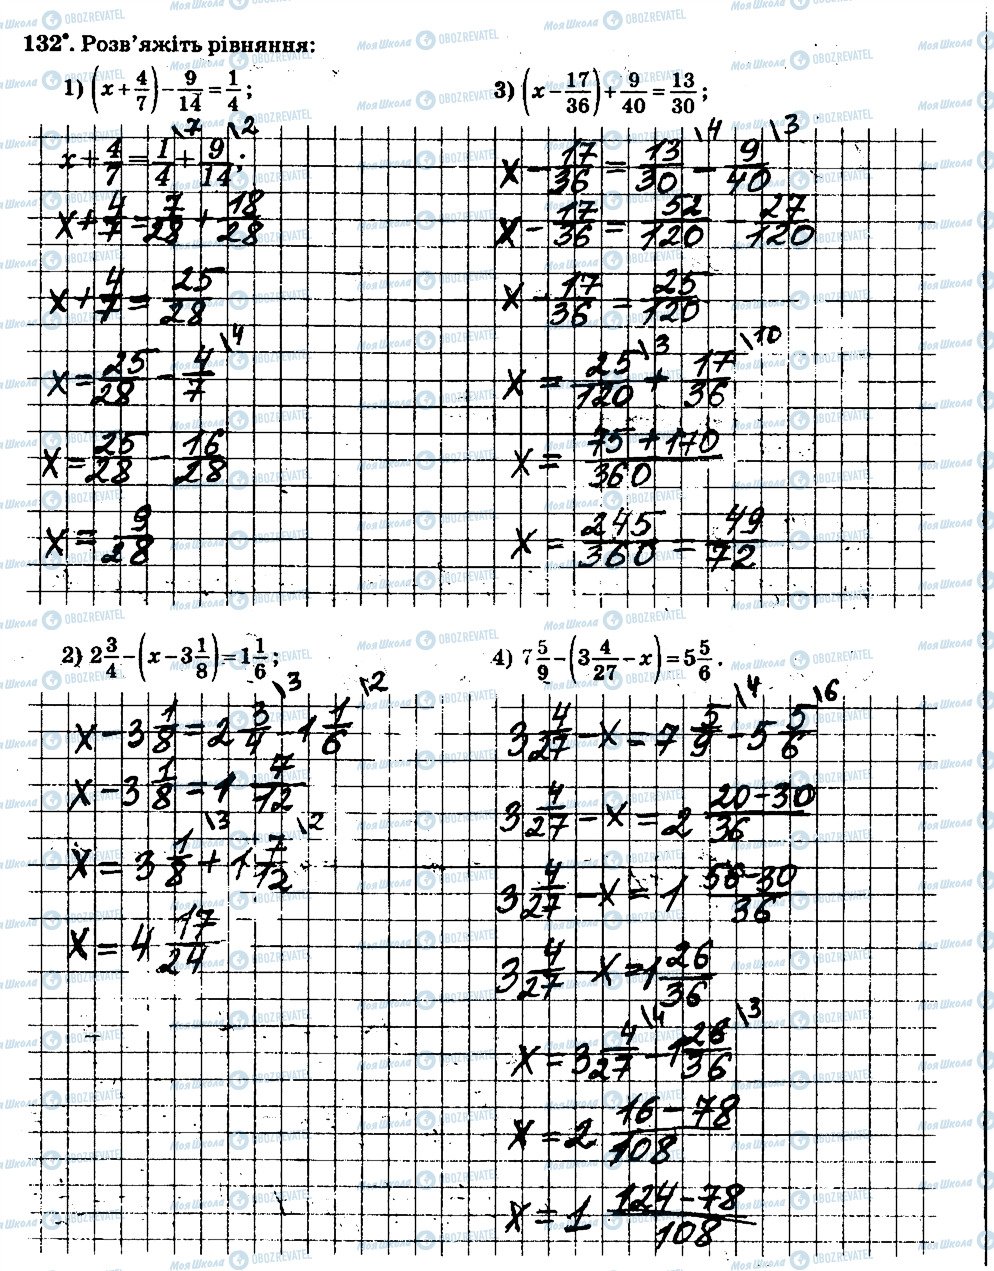 132°. Розв’яжіть рівняння:
1) (x + 4/7) − 9/14 = 1/4;
x + 4/7 = 1/4 \7 + 9/14 \2;
x + 4/7 = 7/28 + 18/28
x + 4/7 = 25/28
x = 25/28 − 4/7 \4
x = 25/28 − 16/28
x = 9/28
3) (x − 17/36) + 9/40 = 13/30;
x − 17/36 = 13/30 \4 − 9/40 \3
x − 17/36 = 52/120 − 27/120
x − 17/36 = 25/120
x = 25/120 \3 + 17/36 \10
x = 75 + 170/360
x = 245/360 = 49/72
2) 2 3/4 − (x − 3 1/8) = 1 1/6;
x − 3 1/8 = 2 3/4 \3 − 1 1/6 \2
x − 3 1/8 = 1 7/12
x = 3 1/8 \3 + 1 7/12 \2
x = 4 17/24
4) 7 5/9 − (3 4/27 − x) = 5 5/6.
3 4/27 − x = 7 5/9 \4 − 5 5/6 \6
3 4/27 − x = 2 20 − 30/36
3 4/27 − x = 1 56 − 30/36
3 4/27 − x = 1 26/36
x = 3 4/27 \4 − 1 26/36 \3
x = 2 16 − 78/108
x = 1 124 − 78/108
Моя Школа OBOZREVATEL